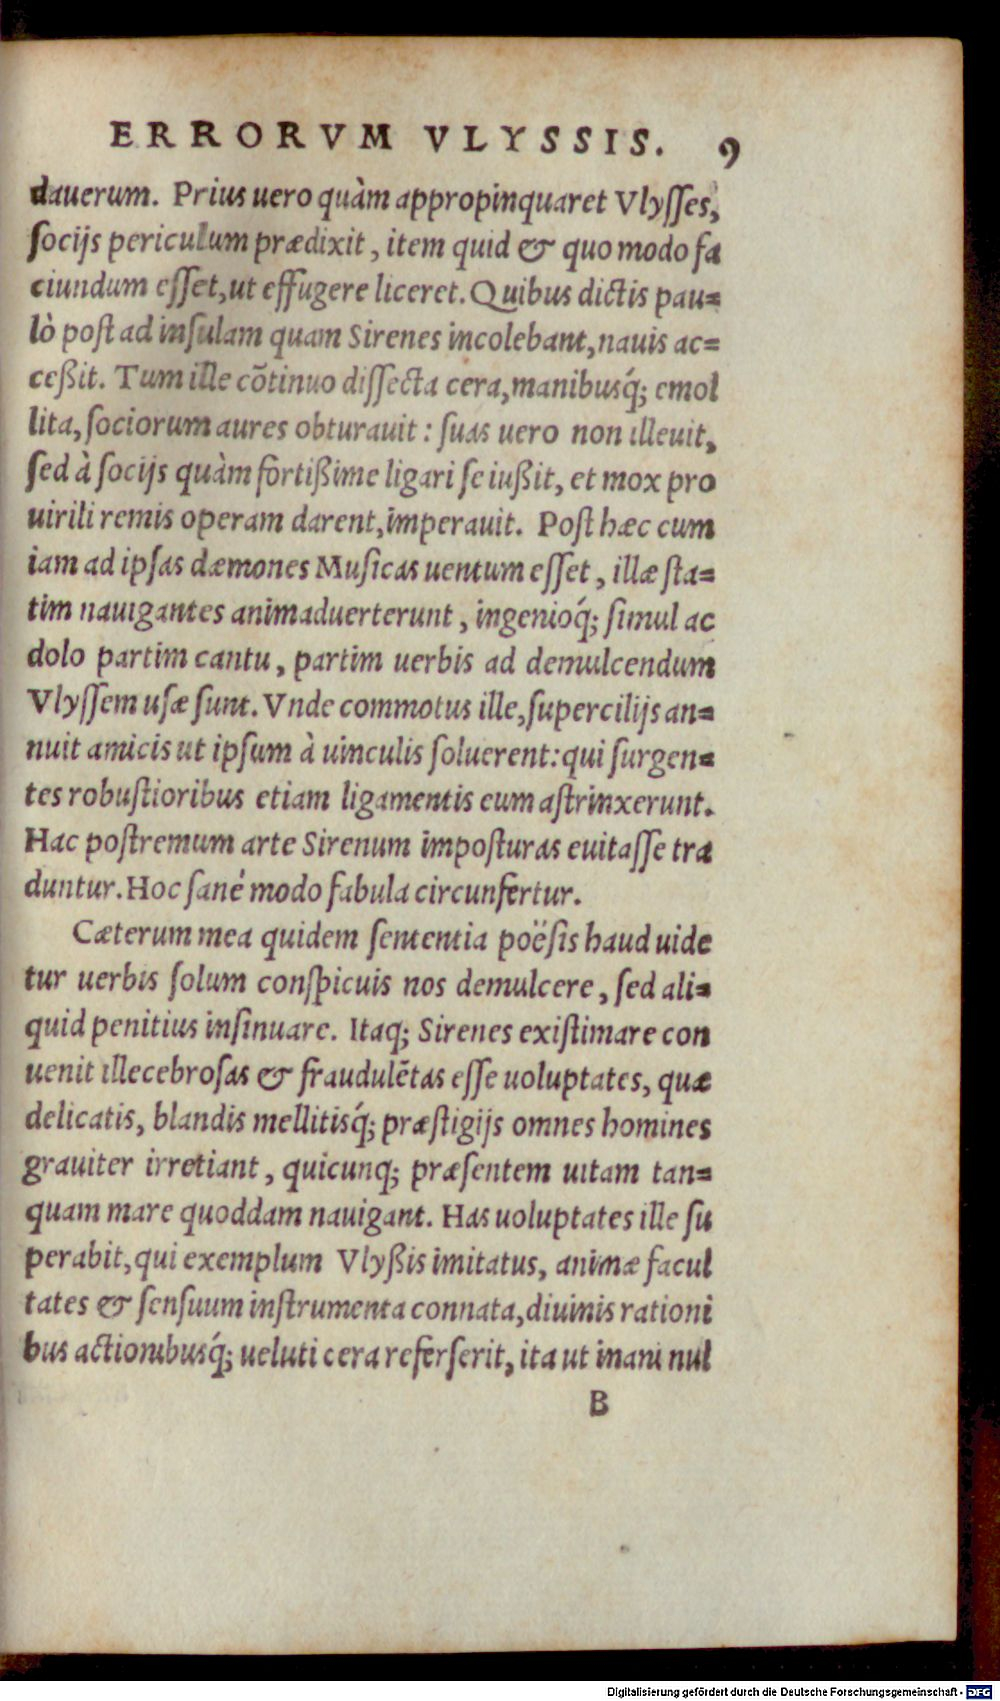 ERRORVM VLYSSIS. 9
dauerum. Prius uero quàm appropinquaret Vlyſſes,
ſocijs periculum prædixit, item quid & quo modo fa
ciundum eſſet, ut effugere liceret. Quibus dictis pau=
lò poſt ad inſulam quam Sirenes incolebant, nauis ac=
ceßit. Tum ille cõtinuo diſſecta cera, manibusq́; emol
lita, ſociorum aures obturauit: ſuas uero non illeuit,
ſed à ſocijs quàm fortißime ligari ſe iußit, et mox pro
uirili remis operam darent, imperauit. Poſt hæc cum
iam ad ipſas dæmones Muſicas uentum eſſet, illæ ſta=
tim nauigantes animaduerterunt, ingenioq́; ſimul ac
dolo partim cantu, partim uerbis ad demulcendum
Vlyſſem uſæ ſunt. Vnde commotus ille, ſupercilijs an=
nuit amicis ut ipſum à uinculis ſoluerent: qui ſurgen=
tes robuſtioribus etiam ligamentis eum aſtrinxerunt.
Hac poſtremum arte Sirenum impoſturas euitaſſe tra
duntur. Hoc ſanè modo fabula circunfertur.
Cæterum mea quidem ſententia poëſis haud uide
tur uerbis ſolum conſpicuis nos demulcere, ſed ali=
quid penitius inſinuare. Itaq; Sirenes exiſtimare con
uenit illecebroſas & fraudulẽtas eſſe uoluptates, quæ
delicatis, blandis mellitisq́; præſtigijs omnes homines
grauiter irretiant, quicunq; præſentem uitam tan=
quam mare quoddam nauigant. Has uoluptates ille ſu
perabit, qui exemplum Vlyßis imitatus, animæ facul
tates & ſenſuum inſtrumenta connata, diuinis rationi
bus actionibusq́; ueluti cera referſerit, ita ut inani nul
B
Digitalisierung gefördert durch die Deutsche Forschungsgemeinschaft - DFG